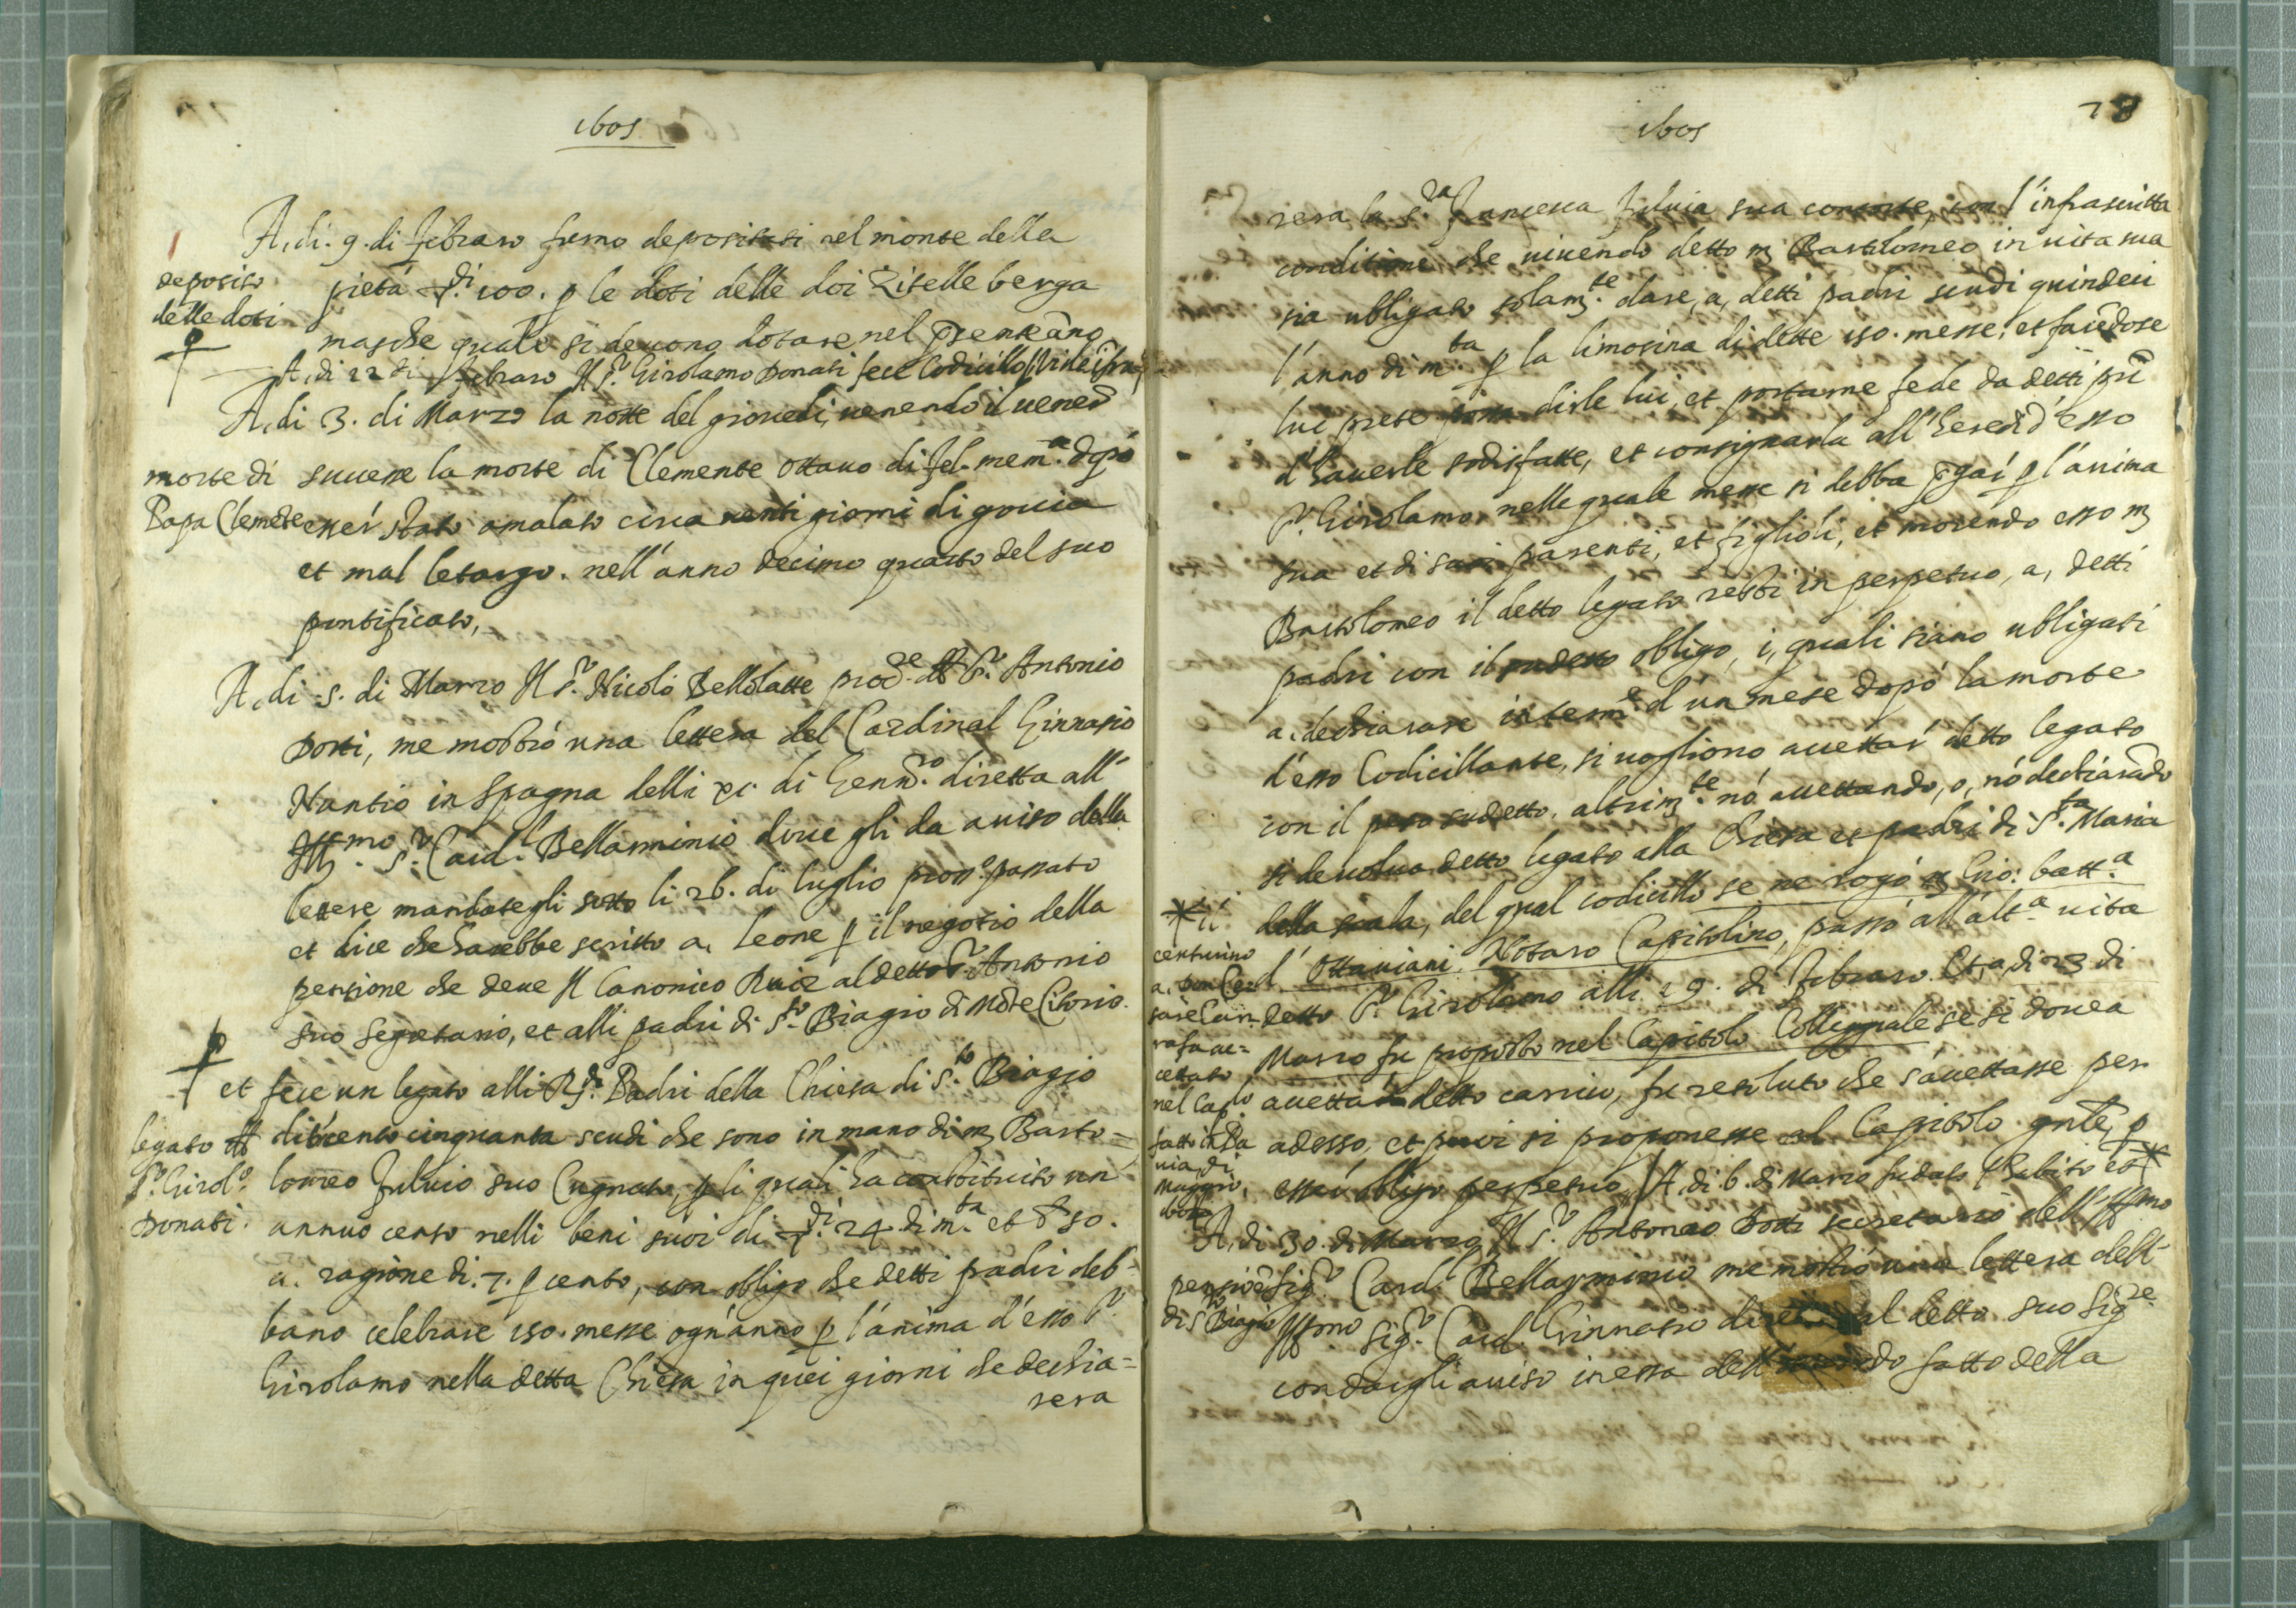 1605
A, di. 9. di febraro furno depositati nel monte della
deposito
delle doti
pietà ∇di. 100. p le doti delle doi Zitelle berga
masche quale si deuono dotare nel pñte año
A, di 22 di febraro Il Sr. Girolamo Donati fece Codicillo
A, di 3. di Marzo la notte del giouedi, uenendo il uenerd
morte di
Papa Clemẽte
successe la morte di Clemente ottauo di fel. mem.a dopó
esser stato amalato circa uenti giorni di goccia
et mal letargo. nell'anno decimo quarto del suo
pontificato,
A, di 5. di Marzo Il Sr. Nicolò Bellolatte procre. del Sr. Antonio
Dotti, me mostrò una lettera del Cardinal Ginnasio
Nuntio in Spagna delli xi. di Gennro. diretta all'
Illmo. Sr. Card.l Bellarminio doue gli da auiso della
lettere mandategli sotto li 26. di luglio prosso passato
et dice che harebbe scritto a, leone p il negotio della
pensione che deue Il Canonico Ruiz al detto Sr. Antonio
suo segretario, et alli padri di Sto. Biagio di Mõte Citorio.
et fece un legato alli Rdi. Padri della Chiesa di Sto. Biagio
legato del
Sr. Girolo.
Donati.
di trecento cinquanta scudi che sono in mano di m Barto=
lomeo Fuluio suo Cugnato, p li quali ha costituito un
annuo censo nelli beni suoi di ∇di. 24. di m.ta et b 50.
a. ragione di. 7. p cento, con obligo che detti padri deb-
bano celebrare 150. messe ogn'anno p l'anima d'esso Sr.
Girolamo nella detta Chiesa in quei giorni che dechia=
rera
1605
78
rera la S.ra Francesca Fuluia sua consorte, con l'infrascritta
conditione che uiuendo detto m Bartolomeo in uita sua
sia ubligato solam.te dare, a, detti padri scudi quindeci
l'anno di m.ta p la limosina di dette 150. messe, et facẽdose
lui prete possa dirle lui, et portarne fede da detti pri
d'hauerle sodisfatte, et consignarla all'heredi d'esso
Sr. Girolamo, nelle quale messe si debba pgar p l'anima
sua et di suoi parenti, et figlioli, et morendo esso m
Bartolomeo il detto legato resti in perpetuo, a, detti
padri con il sudetto obligo, i, quali siano ubligati
a, dechiarare in termie d'un mese dopó la morte
d'esso Codicillante, si uogliono accettar detto legato
con il peso sudetto. altrim.te nó accettando, o, nó dechiarãdo
si deuolua detto legato alla Chiesa et padri di S.ta Maria
della scala, del qual codicillo se ne rogó m Gio: batt.a
Ottauiani. Notaro Capitolino, passò all'alt.a uita
detto Sr. Girolamo alli 19. di febraro. Et, a, di 23 di
Marzo fu proposto nel Capitolo Collegiale se si douea
accettar detto carico, fu resoluto che s'accettasse per
adesso, et puoi si proponesse al Capitolo gnle, p
esser obligo perpetuo, A, di 6. di Marzo fu dato l'habito et *
* il
centurino
a,
rafa ac=
cettato
nel Caplo
fatto in Pa
uia, di
Maggio,
A, di 30. di Marzo Il Sr. Antonio Dotti secretario dell'Illmo
pensiõe
di Sto Biagio
Sigr. Card.l Bellarminio me mostrò una lettera dell'
Illmo Sigr. Card.l Ginnasio diretta al detto suo Sigre.
con dargli auiso in essa dell' fatto della